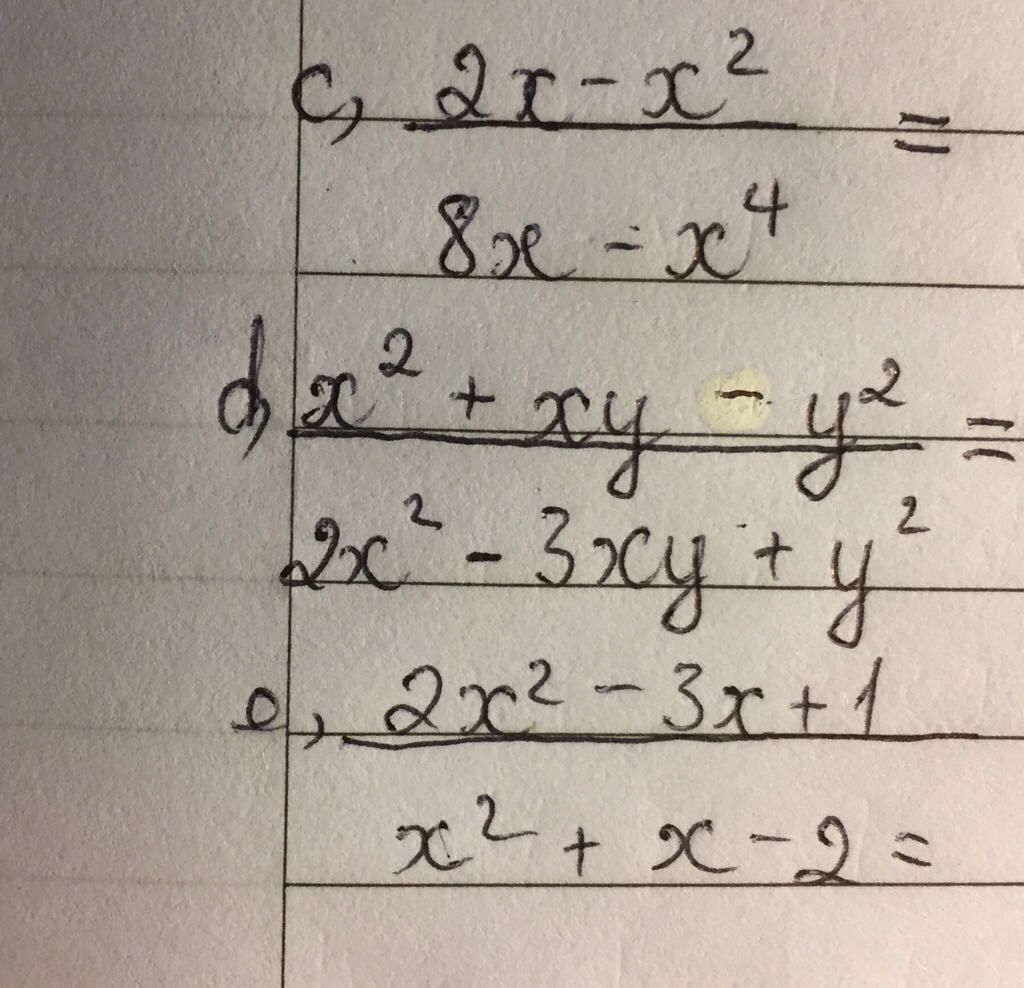 c, 2x - x² =
8x - x⁴
d, x² + xy - y² =
2x² - 3xy + y²
e, 2x² - 3x + 1
x² + x - 2 =